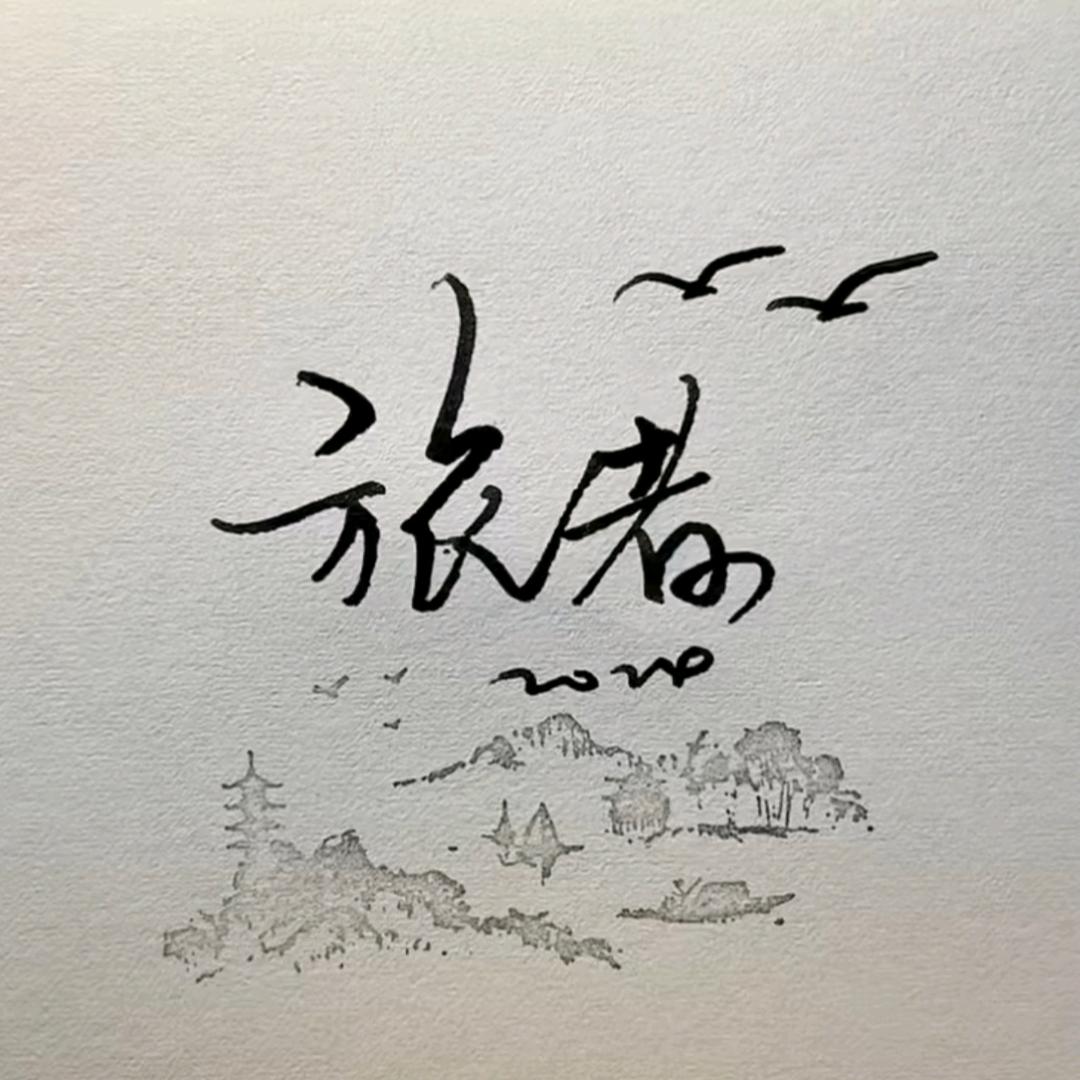 旅者
2024